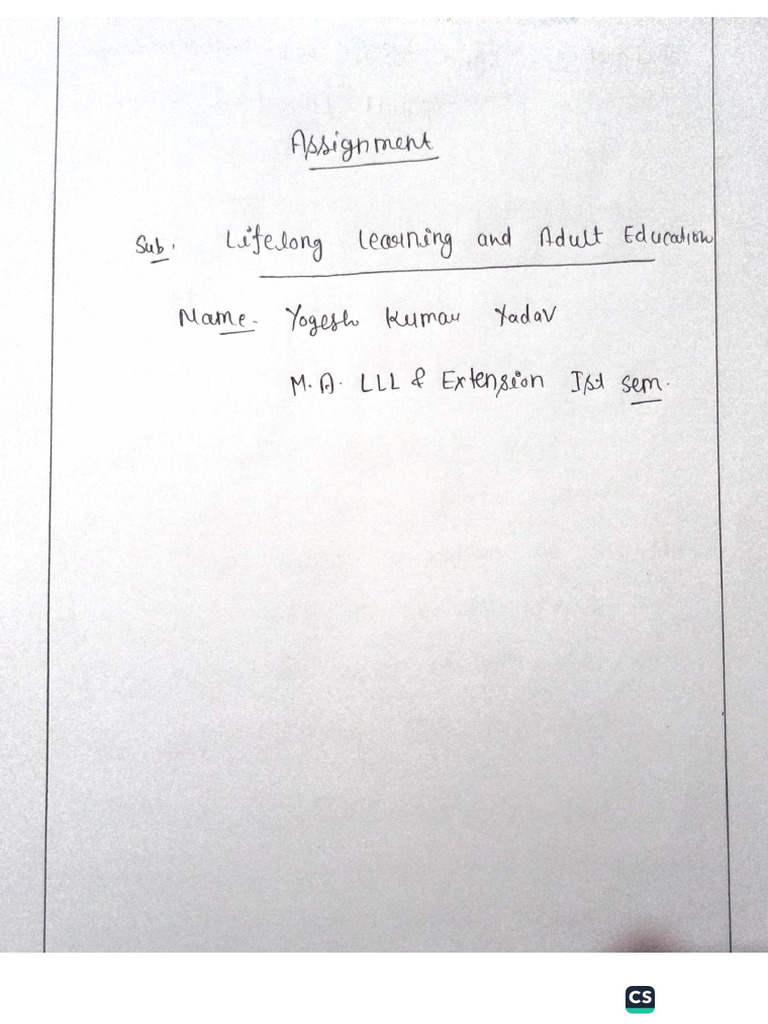 Assignment
Sub. Lifelong Learning and Adult Education
Name- Yogesh Kumar Yadav
M.A. LLL & Extension Ist sem.
CS